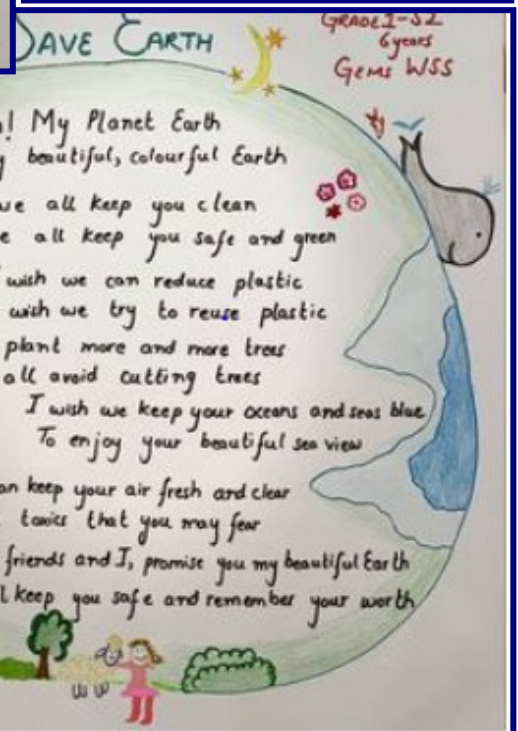 SAVE EARTH
GRADE1-S2
6 years
GEMS WSS
! My Planet Earth
beautiful, colourful Earth
we all keep you clean
all keep you safe and green
wish we can reduce plastic
wish we try to reuse plastic
plant more and more trees
all avoid cutting trees
I wish we keep your oceans and seas blue
To enjoy your beautiful sea view
keep your air fresh and clear
toxics that you may fear
friends and I, promise you my beautiful Earth
keep you safe and remember your worth